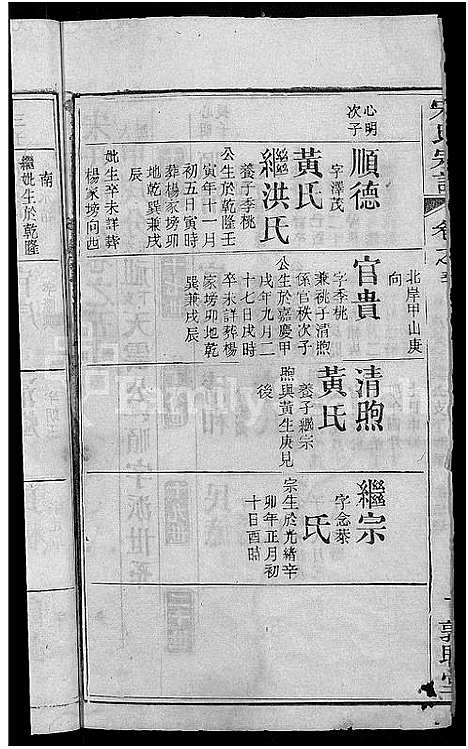 心明
次子
順德
字澤茂
黃氏
繼洪氏
養子季桃
公生於乾隆壬
寅年十一月
初五日寅時
葬楊家塝卯
地乾巽兼戌
辰
妣生卒未詳葬
楊家塝向西
北岸甲山庚
向
官貴
字季桃
兼祧子清煦
係官秩次子
公生於嘉慶甲
戌年九月二
十七日戌時
卒未詳葬楊
家塝卯地乾
巽兼戌辰
清煦
黃氏
養子繼宗
煦與黃生庚見
後
繼宗
字念萊
氏
宗生於光緒辛
卯年正月初
十日酉時
南
繼妣生於乾隆